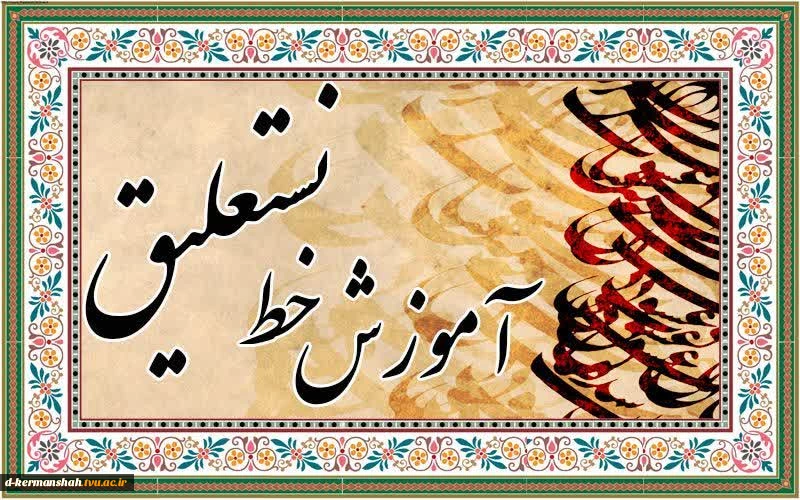 آموزش خط
نستعلیق
d-kermanshah.tvu.ac.ir